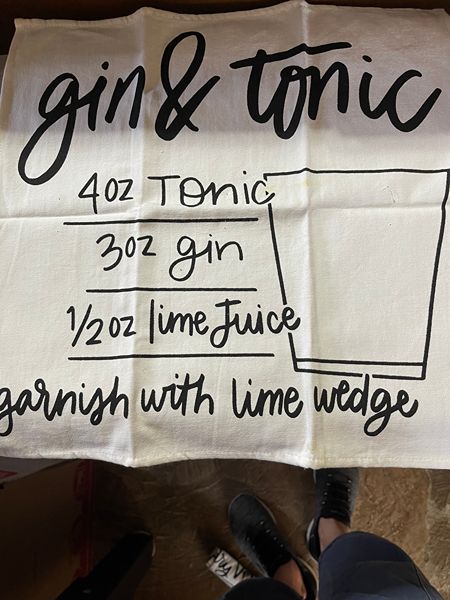 gin & tonic
4oz Tonic
3oz gin
1/2oz lime Juice
garnish with lime wedge